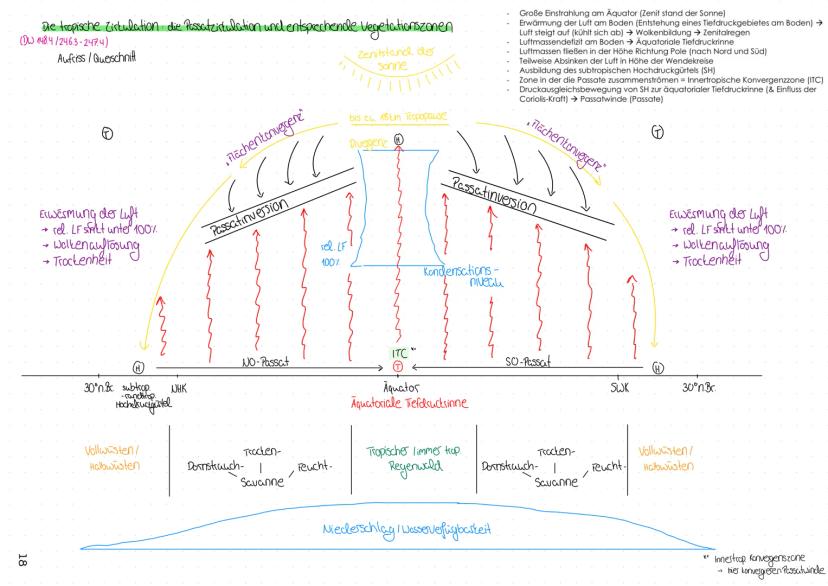 Die tropische Zirkulation - die Passatzirkulation und entsprechende Vegetationszonen
Aufriss / Querschnitt
- Große Einstrahlung am Äquator (Zenit stand der Sonne)
- Erwärmung der Luft am Boden (Entstehung eines Tiefdruckgebietes am Boden) →
Luft steigt auf (kühlt sich ab) → Wolkenbildung → Zenitalregen
- Luftmassendefizit am Boden → Äquatoriale Tiefdruckrinne
- Luftmassen fließen in der Höhe Richtung Pole (nach Nord und Süd)
- Teilweise Absinken der Luft in Höhe der Wendekreise
- Ausbildung des subtropischen Hochdruckgürtels (SH)
- Zone in der die Passate zusammenströmen = Innertropische Konvergenzzone (ITC)
- Druckausgleichsbewegung von SH zur äquatorialer Tiefdruckrinne (& Einfluss der
Coriolis-Kraft) → Passatwinde (Passate)
Zenitstand der
Sonne
bis zu 18km Tropopause
"Flächenkonvergenz"
"Flächenkonvergenz"
T
T
Divergenz
H
Passatinversion
Passatinversion
Erwärmung der Luft
→ rel. LF sinkt unter 100%
→ Wolkenauflösung
→ Trockenheit
Erwärmung der Luft
→ rel. LF sinkt unter 100%
→ Wolkenauflösung
→ Trockenheit
rel. LF
100%
Kondensations-
niveau
ITC *
H
NO-Passat
T
SO-Passat
H
30°n.Br.
subtrop.
-randtrop.
Hochdruckgürtel
NWK
Äquator
SWK
30°n.Br.
Äquatoriale Tiefdruckrinne
Vollwüsten /
Halbwüsten
Dornstrauch-
Trocken-
Feucht-
Savanne
Tropischer / immer trop.
Regenwald
Dornstrauch-
Trocken-
Feucht-
Savanne
Vollwüsten /
Halbwüsten
Niederschlag / Wasserverfügbarkeit
18
* Innertrop. Konvergenzzone
→ hier konvergieren Passatwinde